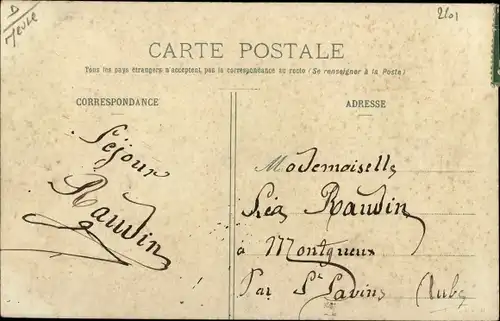 D
Meuse
2601
CARTE POSTALE
Tous les pays étrangers n'acceptent pas la correspondance au recto (Se renseigner à la Poste)
CORRESPONDANCE
ADRESSE
Séjour
Raudin
Mademoiselle
Léa Raudin
à Montgueux
Par St Lavine (Aube